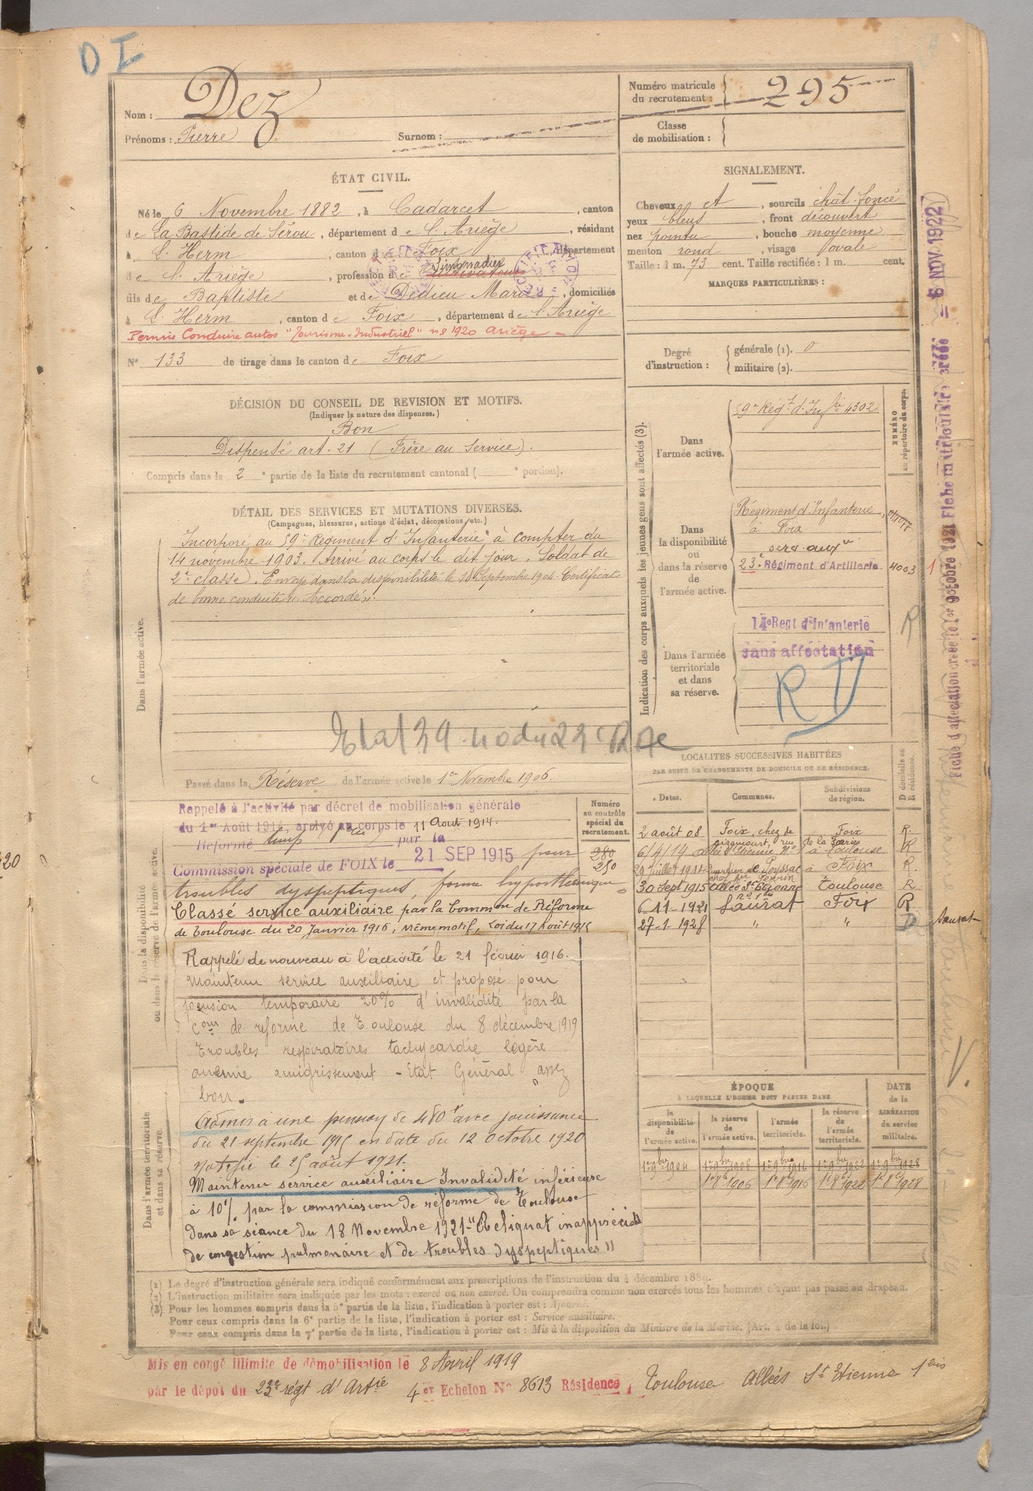 D I
Nom : Dez
Prénoms : Pierre Surnom :
Numéro matricule du recrutement : 295
Classe de mobilisation :
ÉTAT CIVIL.
Né le 6 Novembre 1882, à Cadarcet, canton
de La Bastide de Sérou, département de l'Ariège, résidant
à L'Herm, canton de Foix, département
de l'Ariège, profession de
fils de Baptiste et de Dedieu Marie, domiciliés
à L'Herm, canton de Foix, département de l'Ariège
Permis Conduire autos "Tourisme-Industriel" n° 8 1920 Ariège
N° 133 de tirage dans le canton de Foix
SIGNALEMENT.
Cheveux et, sourcils chât foncé
yeux bleus, front découvert
nez pointu, bouche moyenne
menton rond, visage ovale
Taille : 1 m. 73 cent. Taille rectifiée : 1 m. cent.
MARQUES PARTICULIÈRES :
Degré d'instruction : générale (1). 0
militaire (2).
DÉCISION DU CONSEIL DE REVISION ET MOTIFS.
(Indiquer la nature des dispenses.)
Bon
Dispensé art. 21 (Frère au Service).
Compris dans la 2e partie de la liste du recrutement cantonal ( e portion).
DÉTAIL DES SERVICES ET MUTATIONS DIVERSES.
(Campagnes, blessures, actions d'éclat, décorations, etc.)
Dans l'armée active.
Incorporé au 59e Régiment d'Infanterie à compter du
14 novembre 1903. Arrivé au corps le dit jour. Soldat de
2e classe. Envoyé dans la disponibilité le Septembre 1904. Certificat
de bonne conduite "Accordé".
Passé dans la Réserve de l'armée active le 1er Novembre 1906.
Indication des corps auxquels les jeunes gens sont affectés (3).
NUMÉRO au répertoire du corps.
Dans l'armée active.
59e Régt d'Infie 4302
Dans la disponibilité ou dans la réserve de l'armée active.
Régiment d'Infanterie
à Foix
23e Régiment d'Artillerie 4003
Dans l'armée territoriale et dans sa réserve.
14e Regt d'Infanterie
sans affectation
R
Fiche matricule
6 NOV. 1922
Dans la disponibilité ou dans la réserve de l'armée active.
Numéro au contrôle spécial du recrutement.
280
250
Rappelé à l'activité par décret de mobilisation générale
du 1er Août 1914, arrivé au corps le 11 Août 1914.
Réformé temp par la
Commission spéciale de FOIX le 21 SEP 1915 pour
troubles dyspeptiques, forme hyposthénique
Classé service auxiliaire par la Common de Réforme
de Toulouse du 20 Janvier 1916, même motif, Loi du 17 Août 1915
Rappelé de nouveau à l'activité le 21 février 1916.
Maintenu service auxiliaire et proposé pour
pension temporaire 20% d'invalidité par la
Com de réforme de Toulouse du 8 décembre 1919
Troubles respiratoires tachycardie légère
anémie amaigrissement - Etat Général assez
bon.
Dans l'armée territoriale et dans sa réserve.
Admis à une pension de 480f avec jouissance
du 21 septembre 1915 en date du 12 octobre 1920
notifié le 25 août 1921.
Maintenu service auxiliaire Invalidité inférieure
à 10% par la commission de réforme de Toulouse
dans sa séance du 18 Novembre 1921 "Reliquat inappréciable
de congestion pulmonaire et de troubles dyspeptiques"
LOCALITÉS SUCCESSIVES HABITÉES
PAR SUITE DE CHANGEMENTS DE DOMICILE OU DE RÉSIDENCE.
Dates. Communes. Subdivisions de région. D domicile ou R résidence.
2 août 08 Foix, chez de Foix R.
6/4/14 Toulouse R.
Foix R.
30 Sept 1915 Toulouse R
6-11-1921 Saurat Foix R
27-1-1928 " " D Saurat
ÉPOQUE
À LAQUELLE L'HOMME DOIT PASSER DANS
la disponibilité de l'armée active. la réserve de l'armée active. l'armée territoriale. la réserve de l'armée territoriale.
DATE de la LIBÉRATION du service militaire.
1er 8bre 1906 1er 8bre 1916 1er 8bre 1922 1er 8bre 1928
(1) Le degré d'instruction générale sera indiqué conformément aux prescriptions de l'instruction du 4 décembre 1889.
(2) L'instruction militaire sera indiquée par les mots : exercé ou non exercé. On comprendra comme non exercés tous les hommes n'ayant pas passé au drapeau.
(3) Pour les hommes compris dans la 5e partie de la liste, l'indication à porter est : Ajourné.
Pour ceux compris dans la 6e partie de la liste, l'indication à porter est : Service auxiliaire.
Pour ceux compris dans la 7e partie de la liste, l'indication à porter est : Mis à la disposition du Ministre de la Marine. (Art. 4 de la loi.)
Mis en congé illimité de démobilisation le 8 Avril 1919
par le dépôt du 23e régt d'Artie 4er Echelon N° 8613 Résidence, Toulouse Allées St Etienne 1bis